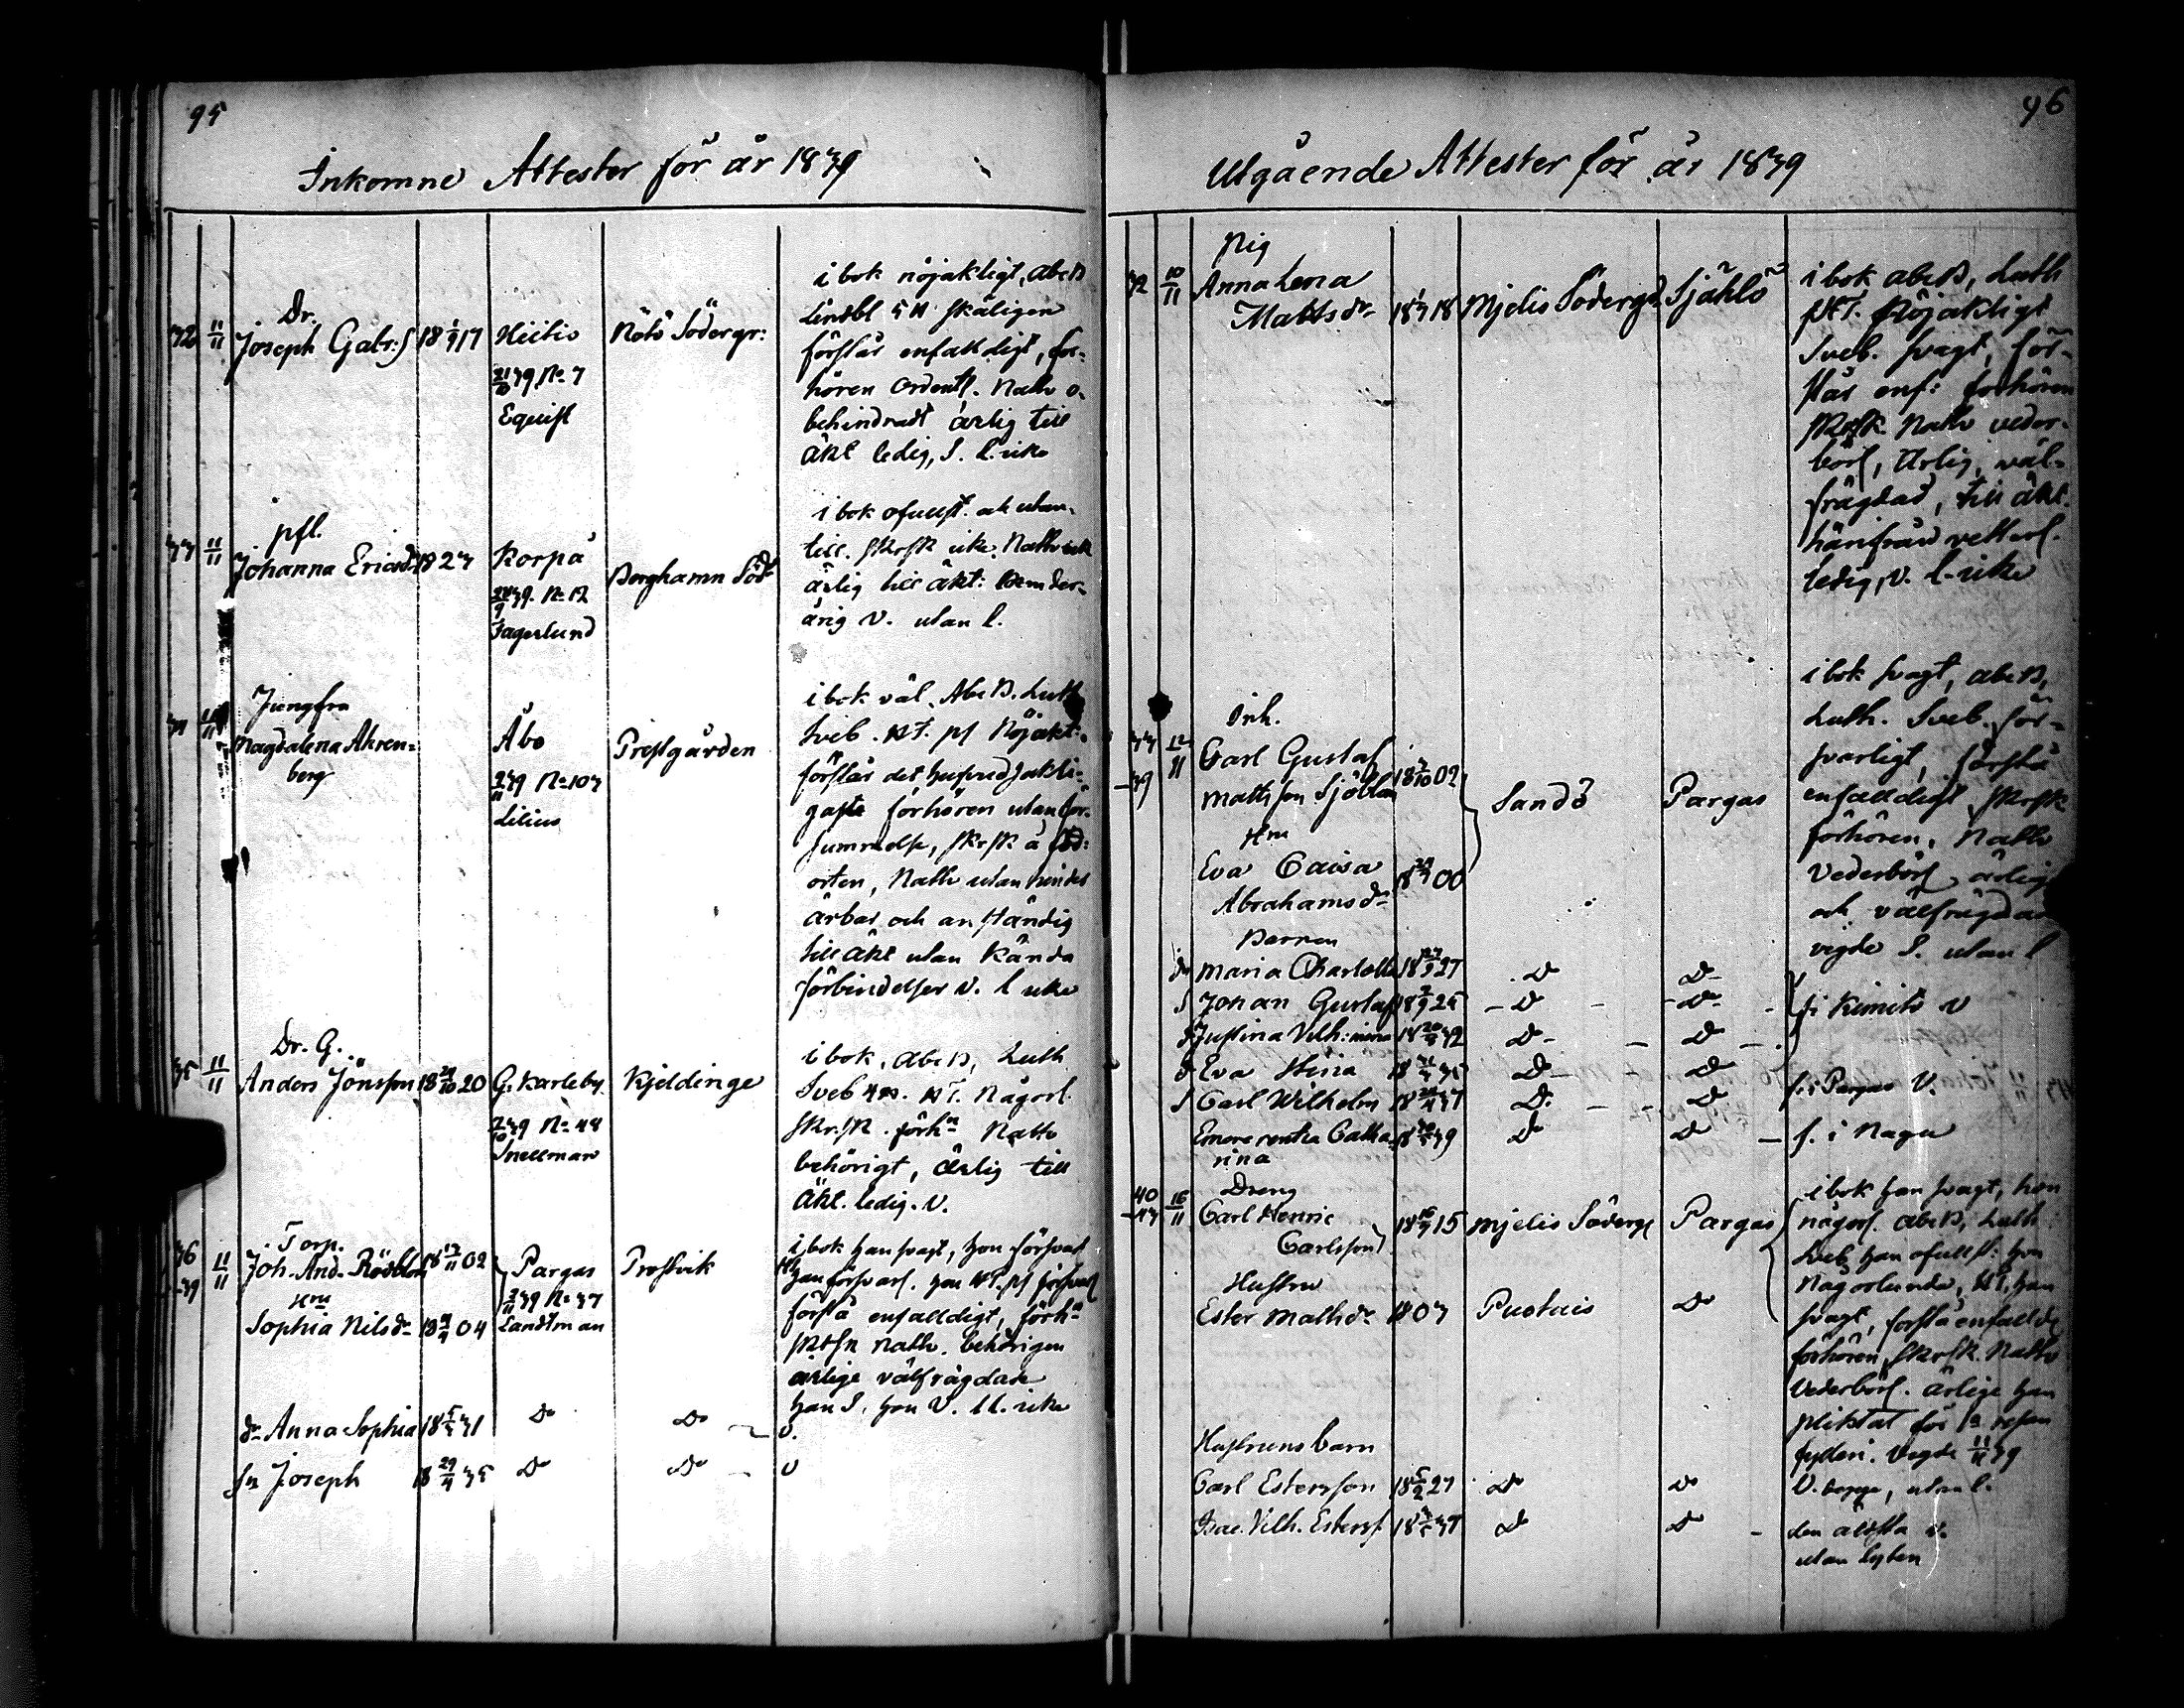 95
Inkomne Attester för år 1839
32 11/11
Dr.
Joseph Gabr:s
18 1/3 17
Hiitis
21/10 39 No 7
Equist
Nötö Södergr:
i bok nöjakligt, abc B
Lindbl 5 H skäligen
förstår enfaldigt, för-
hören ordentl. Nattv o-
behindradt ärlig till
äkt ledig, S. l. icke
33 11/11
pfl.
Johanna Ericsdr
1823
Korpo
39. No 12
Fagerlund
Berghamn Söd
i bok ofullst. och utan-
till. skrsk icke. Nattv icke
ärlig till äkt: minder-
årig V. utan l.
34
Jungfru
Magdalena Ahren-
berg
Åbo
2/11 39 No 103
Lilius
Prestgården
i bok väl. Abc B. Luth
Sveb. HT. ps Nöjakt:
förstår det hufvudsakli-
gaste förhören utan för-
summelse, skrsk å
orten, Nattv utan hinder
ärbar och anständig
till äkt utan kända
förbindelser V. l icke
35 11/11
Dr. G.
Anders Jönsson
18 21/10 20
G. Karleby
7/10 39 No 48
Snellman
Kjeldinge
i bok, abc B, Luth
Sveb HT. Någorl.
skr:sk. förhn Nattv
behörigt, ärlig till
äkt. ledig. V.
36 -39 11/11
Torp.
Joh. And. Rödblom
18 12/11 02
Hru
Sophia Nilsdr
18 04
Pargas
2/11 39 No 37
Landtman
Prostvik
i bok han svagt, hon försvarl
han försvarl. hon HT. ps försvarl
förstå enfalldigt, förhn
skrsk nattv. behörigen
ärlige välfrägdade
han S, hon V. ll. icke
dr Anna Sophia 18 5/5 31 Do Do V.
sn Joseph 18 29/4 35 Do Do V
96
Utgående Attester för år 1839
32 10/11
Pig
Anna Lena
Mattsdr
18 1/3 18
Mjelis Södergd
Sjählö
i bok abc B, Luth
HT. Nöjakligt
Sveb. svagt, för-
står enf: förhören
skrsk. Nattv veder-
börl, Ärlig, väl-
frägdad, till äkt.
härifrån vetterl.
ledig, V. l. icke
33 -39 12/11
Inh.
Carl Gustaf
Mattsson Sjöblom
18 3/10 02
Hru
Eva Caisa
Abrahamsdr
18 00
Sandö
Pargas
i bok svagt, abc B,
Luth. Sveb. för-
svarligt, förstå
enfalldigt skrsk
förhören, Nattv
vederbörl, ärlige
och välfrägdade
vigde S. utan l
Barnen
d Maria Charlotta 18 27 Do Do
s Johan Gustaf 18 2/9 25 Do Do f. i Kimito V
d Justina Vilh:mina 18 32 Do Do
d Eva Stina 18 35 Do Do
s Carl Wilhelm 18 37 Do Do f. i Pargas V.
Emerentia Catha- 18 39 Do Do f. i Nagu
rina
40 -43 16/11
Dreng
Carl Henric
Carlsson
18 15
Mjelis Söderg
Pargas
i bok han svagt, hon
någorl. abc B, Luth
Sveb han ofullst: hon
Någorlunda, HT. han
svagt, förstå enfalldi
förhören, skrsk. Nattv
Vederbörl. ärlige han
pliktat för 1a resan
fylleri. Vigde 11/11 39
V. begge, utan l.
Hustru
Ester Mattsdr 1803 Pustuis Do
Hustruns barn
Carl Estersson 18 5/2 27 Do Do
Isac. Vilh. Esterss. 18 37 Do Do den äldsta v.
utan lyten